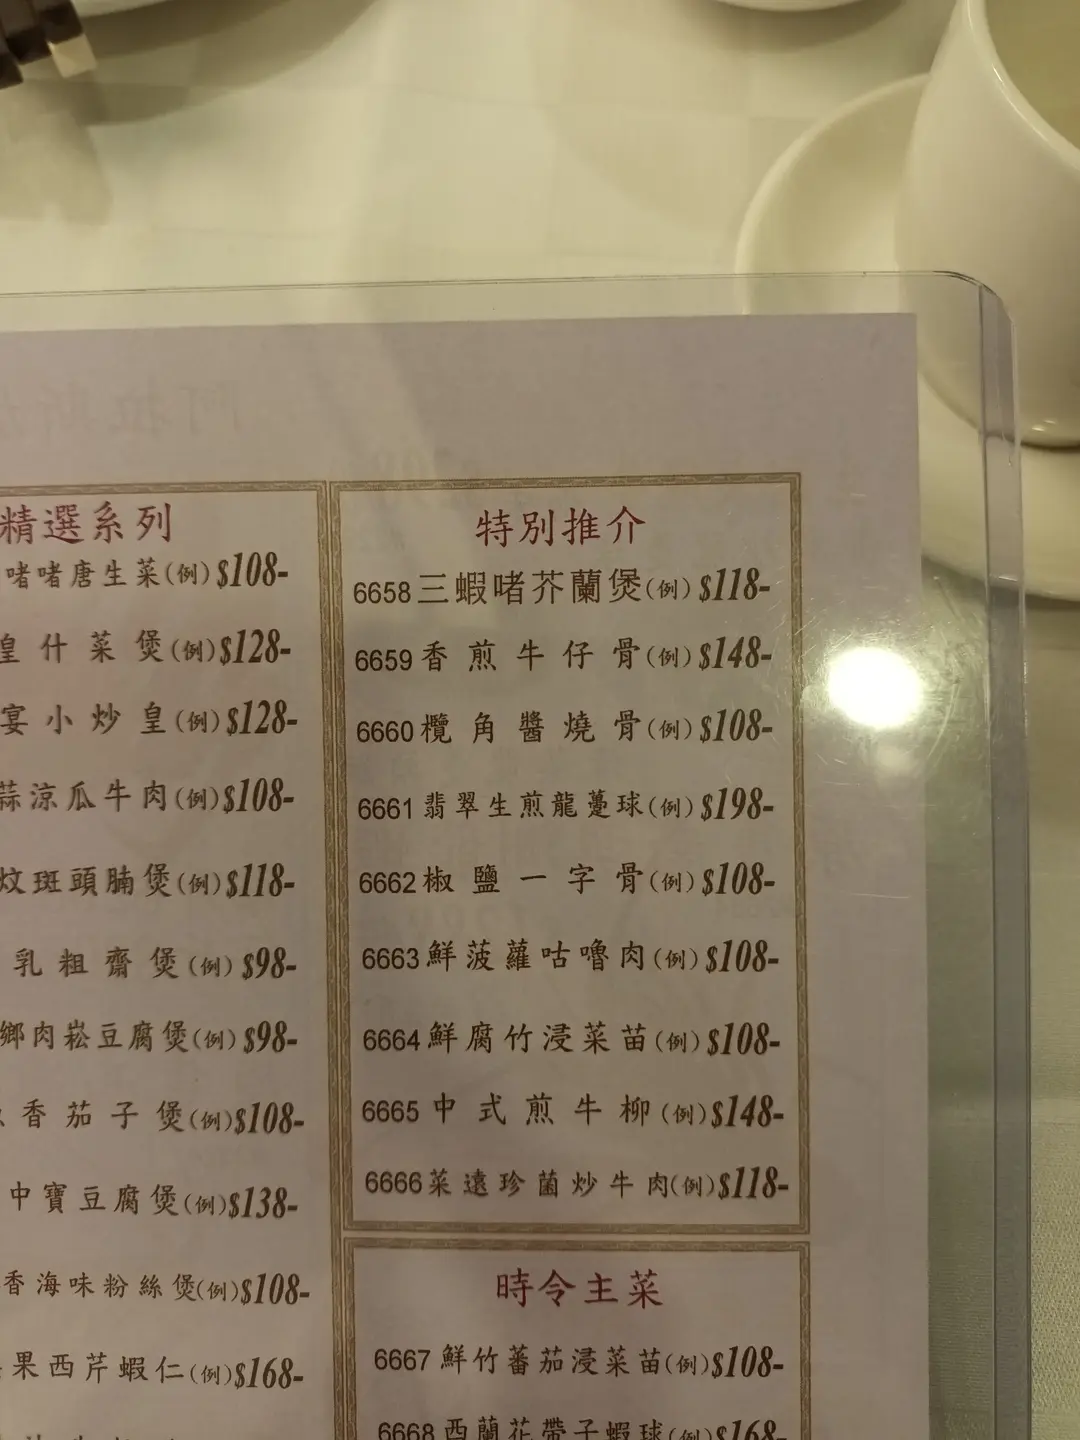 精選系列
啫啫唐生菜(例) $108-
什菜煲(例) $128-
宴小炒皇(例) $128-
蒜涼瓜牛肉(例) $108-
炆斑頭腩煲(例) $118-
乳粗齋煲(例) $98-
鄉肉崧豆腐煲(例) $98-
香茄子煲(例) $108-
中寶豆腐煲(例) $138-
香海味粉絲煲(例) $108-
果西芹蝦仁(例) $168-
特別推介
6658 三蝦啫芥蘭煲(例) $118-
6659 香煎牛仔骨(例) $148-
6660 欖角醬燒骨(例) $108-
6661 翡翠生煎龍躉球(例) $198-
6662 椒鹽一字骨(例) $108-
6663 鮮菠蘿咕嚕肉(例) $108-
6664 鮮腐竹浸菜苗(例) $108-
6665 中式煎牛柳(例) $148-
6666 菜遠珍菌炒牛肉(例) $118-
時令主菜
6667 鮮竹蕃茄浸菜苗(例) $108-
6668 西蘭花帶子蝦球(例) $168-